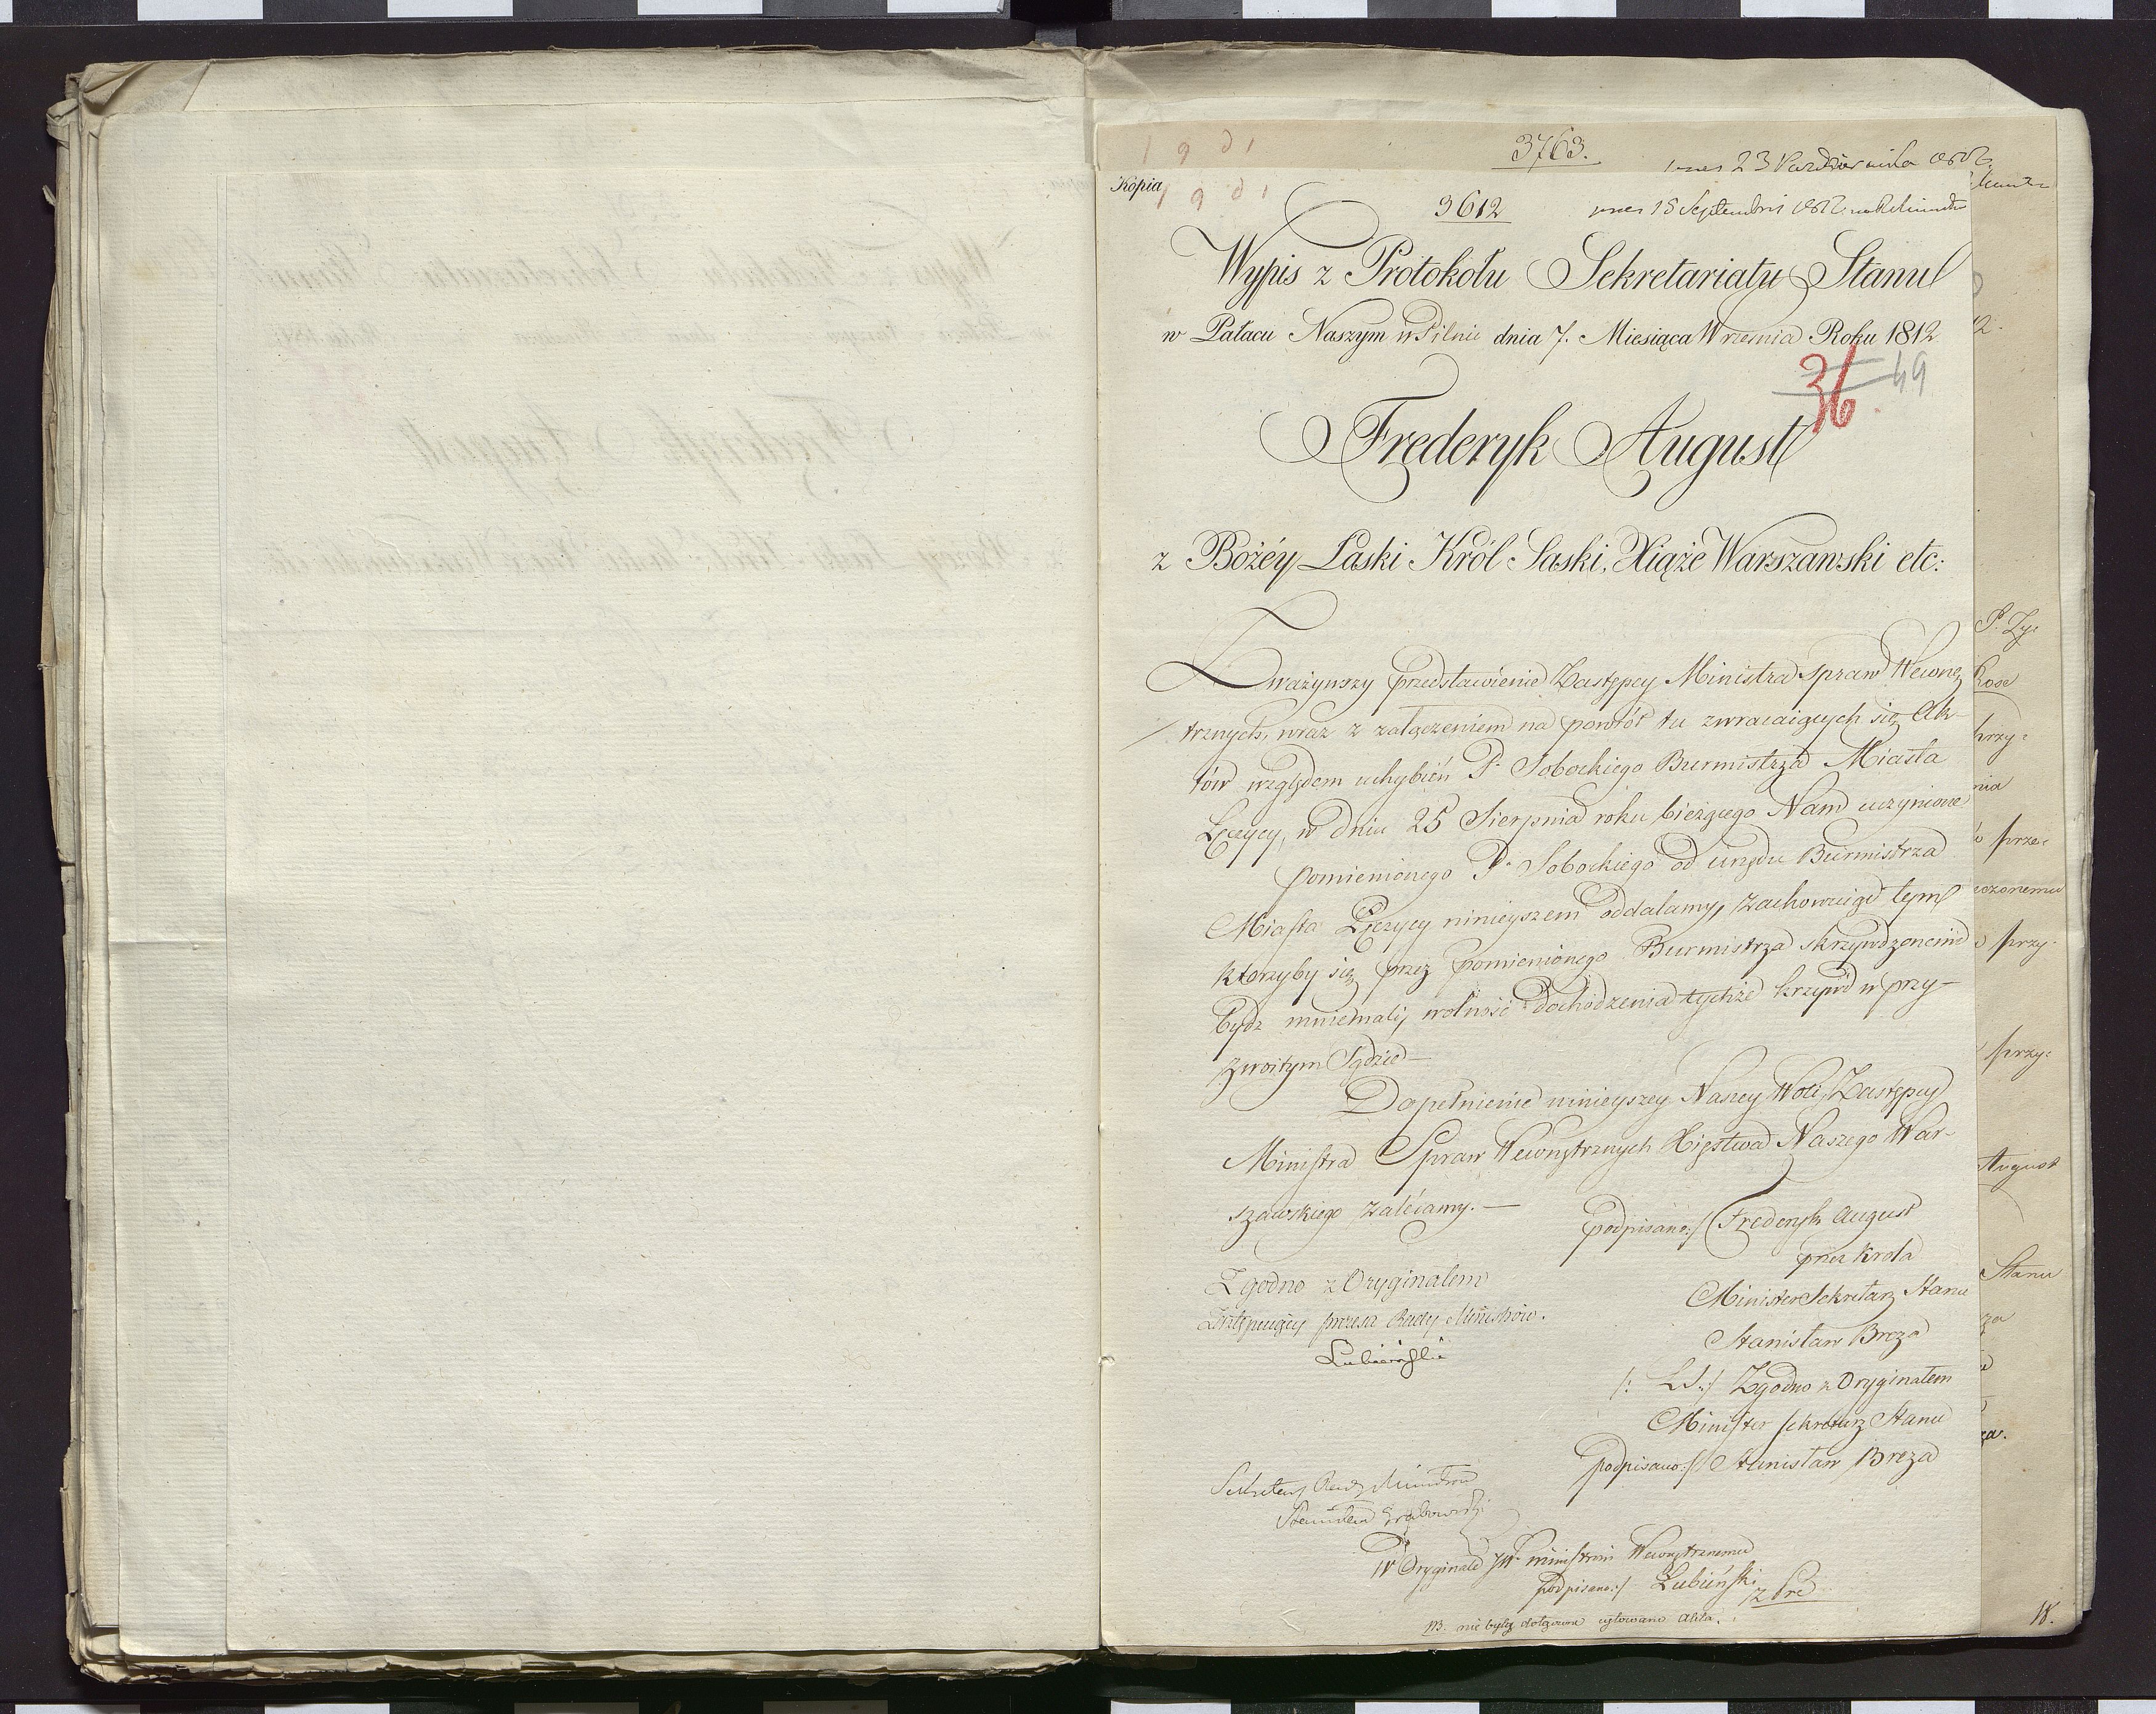 3763.
23 Październida 1812
Kopia
3612
15 Septembris 1812
Wypis z Protokołu Sekretariatu Stanu
w Pałacu Naszym w Pilnic dnia 7. Miesiąca Września Roku 1812
36 49
Frederyk August
z Bożéy Łaski Król Saski, Xiąże Warszawski etc:
Zważywszy przedstawienie Zastępcy Ministra Spraw Wewnę
trznych, wraz z załączeniem na powrót tu zwracaiących się Ak-
tów względem uchybień P. Sobockiego Burmistrza Miasta
Łęczycy, w dniu 25 Sierpnia roku bieżącego Nam uczynione
pomienionego P. Sobockiego od urzędu Burmistrza
Miasta Łęczycy ninieyszem oddalamy, zachowuiąc tym
którzyby się przez pomienionego Burmistrza skrzywdzonemi
bydz mniemali, wolność dochodzenia tychże krzywd w przy-
zwoitym Sądzie —
Dopełnienie ninieyszey Naszey Woli, Zastępcy
Ministra Spraw Wewnętrznych Xięstwa Naszego War-
szawskiego zalecamy. —
podpisano:/ Frederyk August
przez Króla
Minister Sekretarz Stanu
Stanisław Breza
/: L.S:/ Zgodno z Oryginałem
Minister Sekretarz Stanu
podpisano:/ Stanisław Breza
Zgodno z Oryginałem
Zastępuiący prezesa Rady Ministrów.
Lubieński
Sekretarz Rady Ministrów
Stanisław Grabowski
W Oryginale JW. Ministrowi Wewnętrznemu
podpisano:/ Łubieński
z Pre
NB. nie były dołączone cytowane Akta.
P. Zy:
krzy:
nia
prze:
czonemu
przy-
przy:
August
Stanu
za
za.
18.